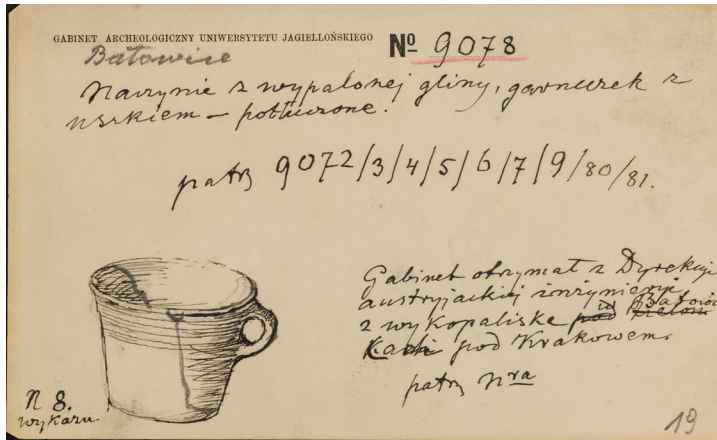 GABINET ARCHEOLOGICZNY UNIWERSYTETU JAGIELLOŃSKIEGO
Nº 9078
Batowice
Naczynie z wypalonej gliny, garnuszek z
uszkiem – potłuczone.
patrz 9072/3/4/5/6/7/9/80/81.
Gabinet otrzymał z Dyrekcji
austryjackiej inżynieryi,
z wykopaliska pod w Batowi
pod Krakowem.
patrz Nra
N 8.
wykazu
19